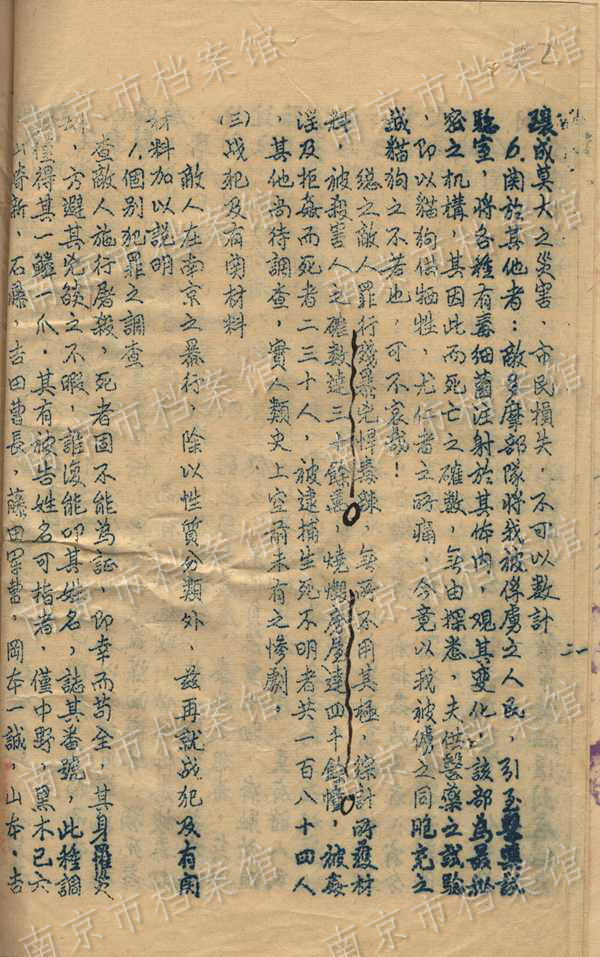 2
釀成莫大之災害，市民損失，不可以數計
6.関於其他者：敵多摩部隊將我被俘虜之人民，引至醫藥試
驗室，將各種有毒細菌注射於其体內，观其變化，該部為最秘
密之机構，其因此而死亡之確數，無由探悉，夫供醫藥之試驗
，即以貓狗供牺牲，尤仁者之所痛，今竟以我被擄之同胞充之
誠貓狗之不若也，可不哀哉！
總之敵人罪行殘暴兇悍毒辣，無所不用其極，綜計所獲材
料，被殺害人之確數達三十餘萬，燒燬房屋達四千餘幢，被姦
淫及拒姦而死者二三十人，被逮捕生死不明者共一百八十四人
，其他尚待調查，實人類史上空前未有之慘劇，
(三)战犯及有関材料
敵人在南京之暴行，除以性質分類外，兹再就战犯及有関
材料加以説明
1.個別犯罪之調查
查敵人施行屠殺，死者固不能為証，即幸而苟全，其身罹災
，方避其兇燄之不暇，誰復能叩其姓名，誌其番號，此種調
查僅得其一鱗一爪，其有被告姓名可指者，僅中野，黑木已六
山本新，石藤，吉田曹長，藤田軍曹，岡本一誠，山本，吉
二一
南京市档案馆